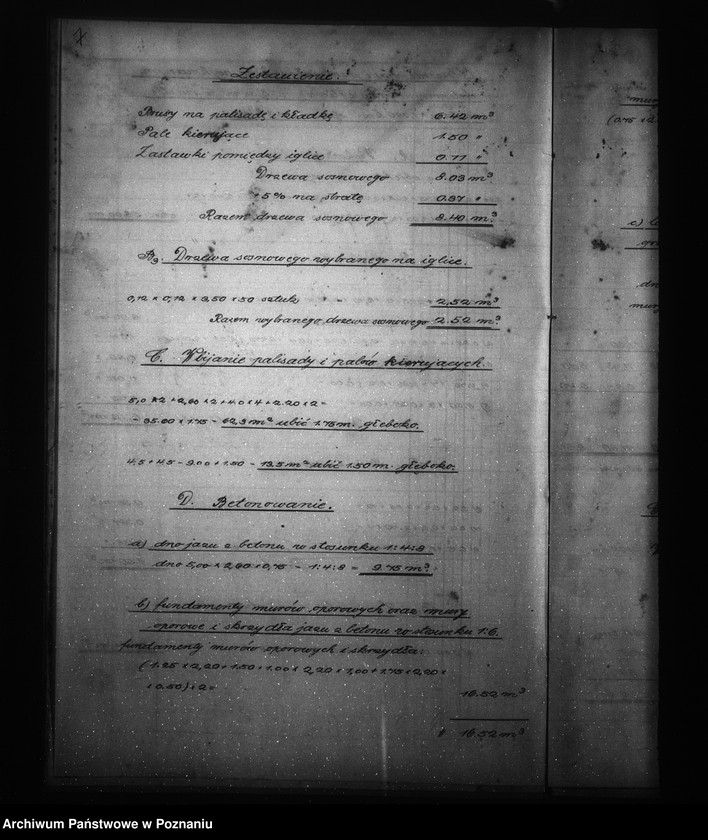 Zestawienie.
Brusy na palisadę i kładkę 6.42 m³
Pale kierujące 1.50 "
Zastawki pomiędzy iglice 0.11 "
Drzewa sosnowego 8.03 m³
+5% na stratę 0.37 "
Razem drzewa sosnowego 8.40 m³
Drzewa sosnowego wybranego na iglice.
0,12 x 0,12 x 3,50 x 50 sztuk 2,52 m³
Razem wybranego drzewa sosnowego 2.52 m³
C. Wbijanie palisady i palów kierujących.
5,0 x 2 + 2,80 x 2 + 4.0 x 4 + 2.20 x 2 =
= 35.60 x 1.75 = 62,3 m² ubić 1.75 m. głęboko.
4,5 + 4.5 = 9.00 x 1.50 = 13.5 m² ubić 1.50 m. głęboko.
D. Betonowanie.
a) dno jazu z betonu w stosunku 1:4:8
dno 5,00 x 2,60 x 0,75 = 1:4:8 = 9.75 m³
b) fundamenty murów oporowych oraz mury
oporowe i skrzydła jazu z betonu w stosunku 1:6.
fundamenty murów oporowych i skrzydła:
(1.25 x 2,20 + 1.50 x 1.00 x 2,20 x 1,00 + 1.75 x 2,20 x
x 0.50) x 2 = 16.52 m³
16.52 m³
Archiwum Państwowe w Poznaniu